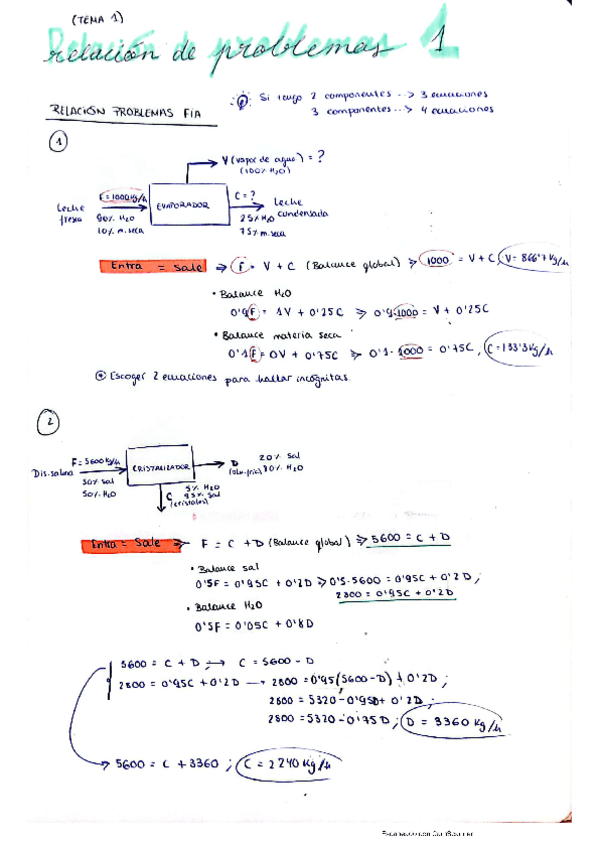 (TEMA 1)
Relación de problemas 1
RELACIÓN PROBLEMAS FIA
Si tengo 2 componentes --> 3 ecuaciones
3 componentes --> 4 ecuaciones
1
V (vapor de agua) = ?
(100% H2O)
F = 1000 Kg/h
Leche fresca
90% H2O
10% m. seca
EVAPORADOR
C = ?
Leche condensada
25% H2O
75% m. seca
Entra = Sale => F = V + C (Balance global) => 1000 = V + C, V = 866'7 Kg/h
• Balance H2O
0'9F = 1V + 0'25C => 0'9·1000 = V + 0'25C
• Balance materia seca
0'1F = 0V + 0'75C => 0'1·1000 = 0'75C, C = 133'3 Kg/h
* Escoger 2 ecuaciones para hallar incógnitas.
2
F = 5600 Kg/h
Dis. salina
50% sal
50% H2O
CRISTALIZADOR
D
20% sal
80% H2O
C
(cristales)
5% H2O
95% sal
Entra = Sale => F = C + D (Balance global) => 5600 = C + D
• Balance sal
0'5F = 0'95C + 0'2D => 0'5·5600 = 0'95C + 0'2D;
2800 = 0'95C + 0'2D
• Balance H2O
0'5F = 0'05C + 0'8D
5600 = C + D -> C = 5600 - D
2800 = 0'95C + 0'2D -> 2800 = 0'95(5600 - D) + 0'2D;
2800 = 5320 - 0'95D + 0'2D;
2800 = 5320 - 0'75D; D = 3360 Kg/h
5600 = C + 3360; C = 2240 Kg/h